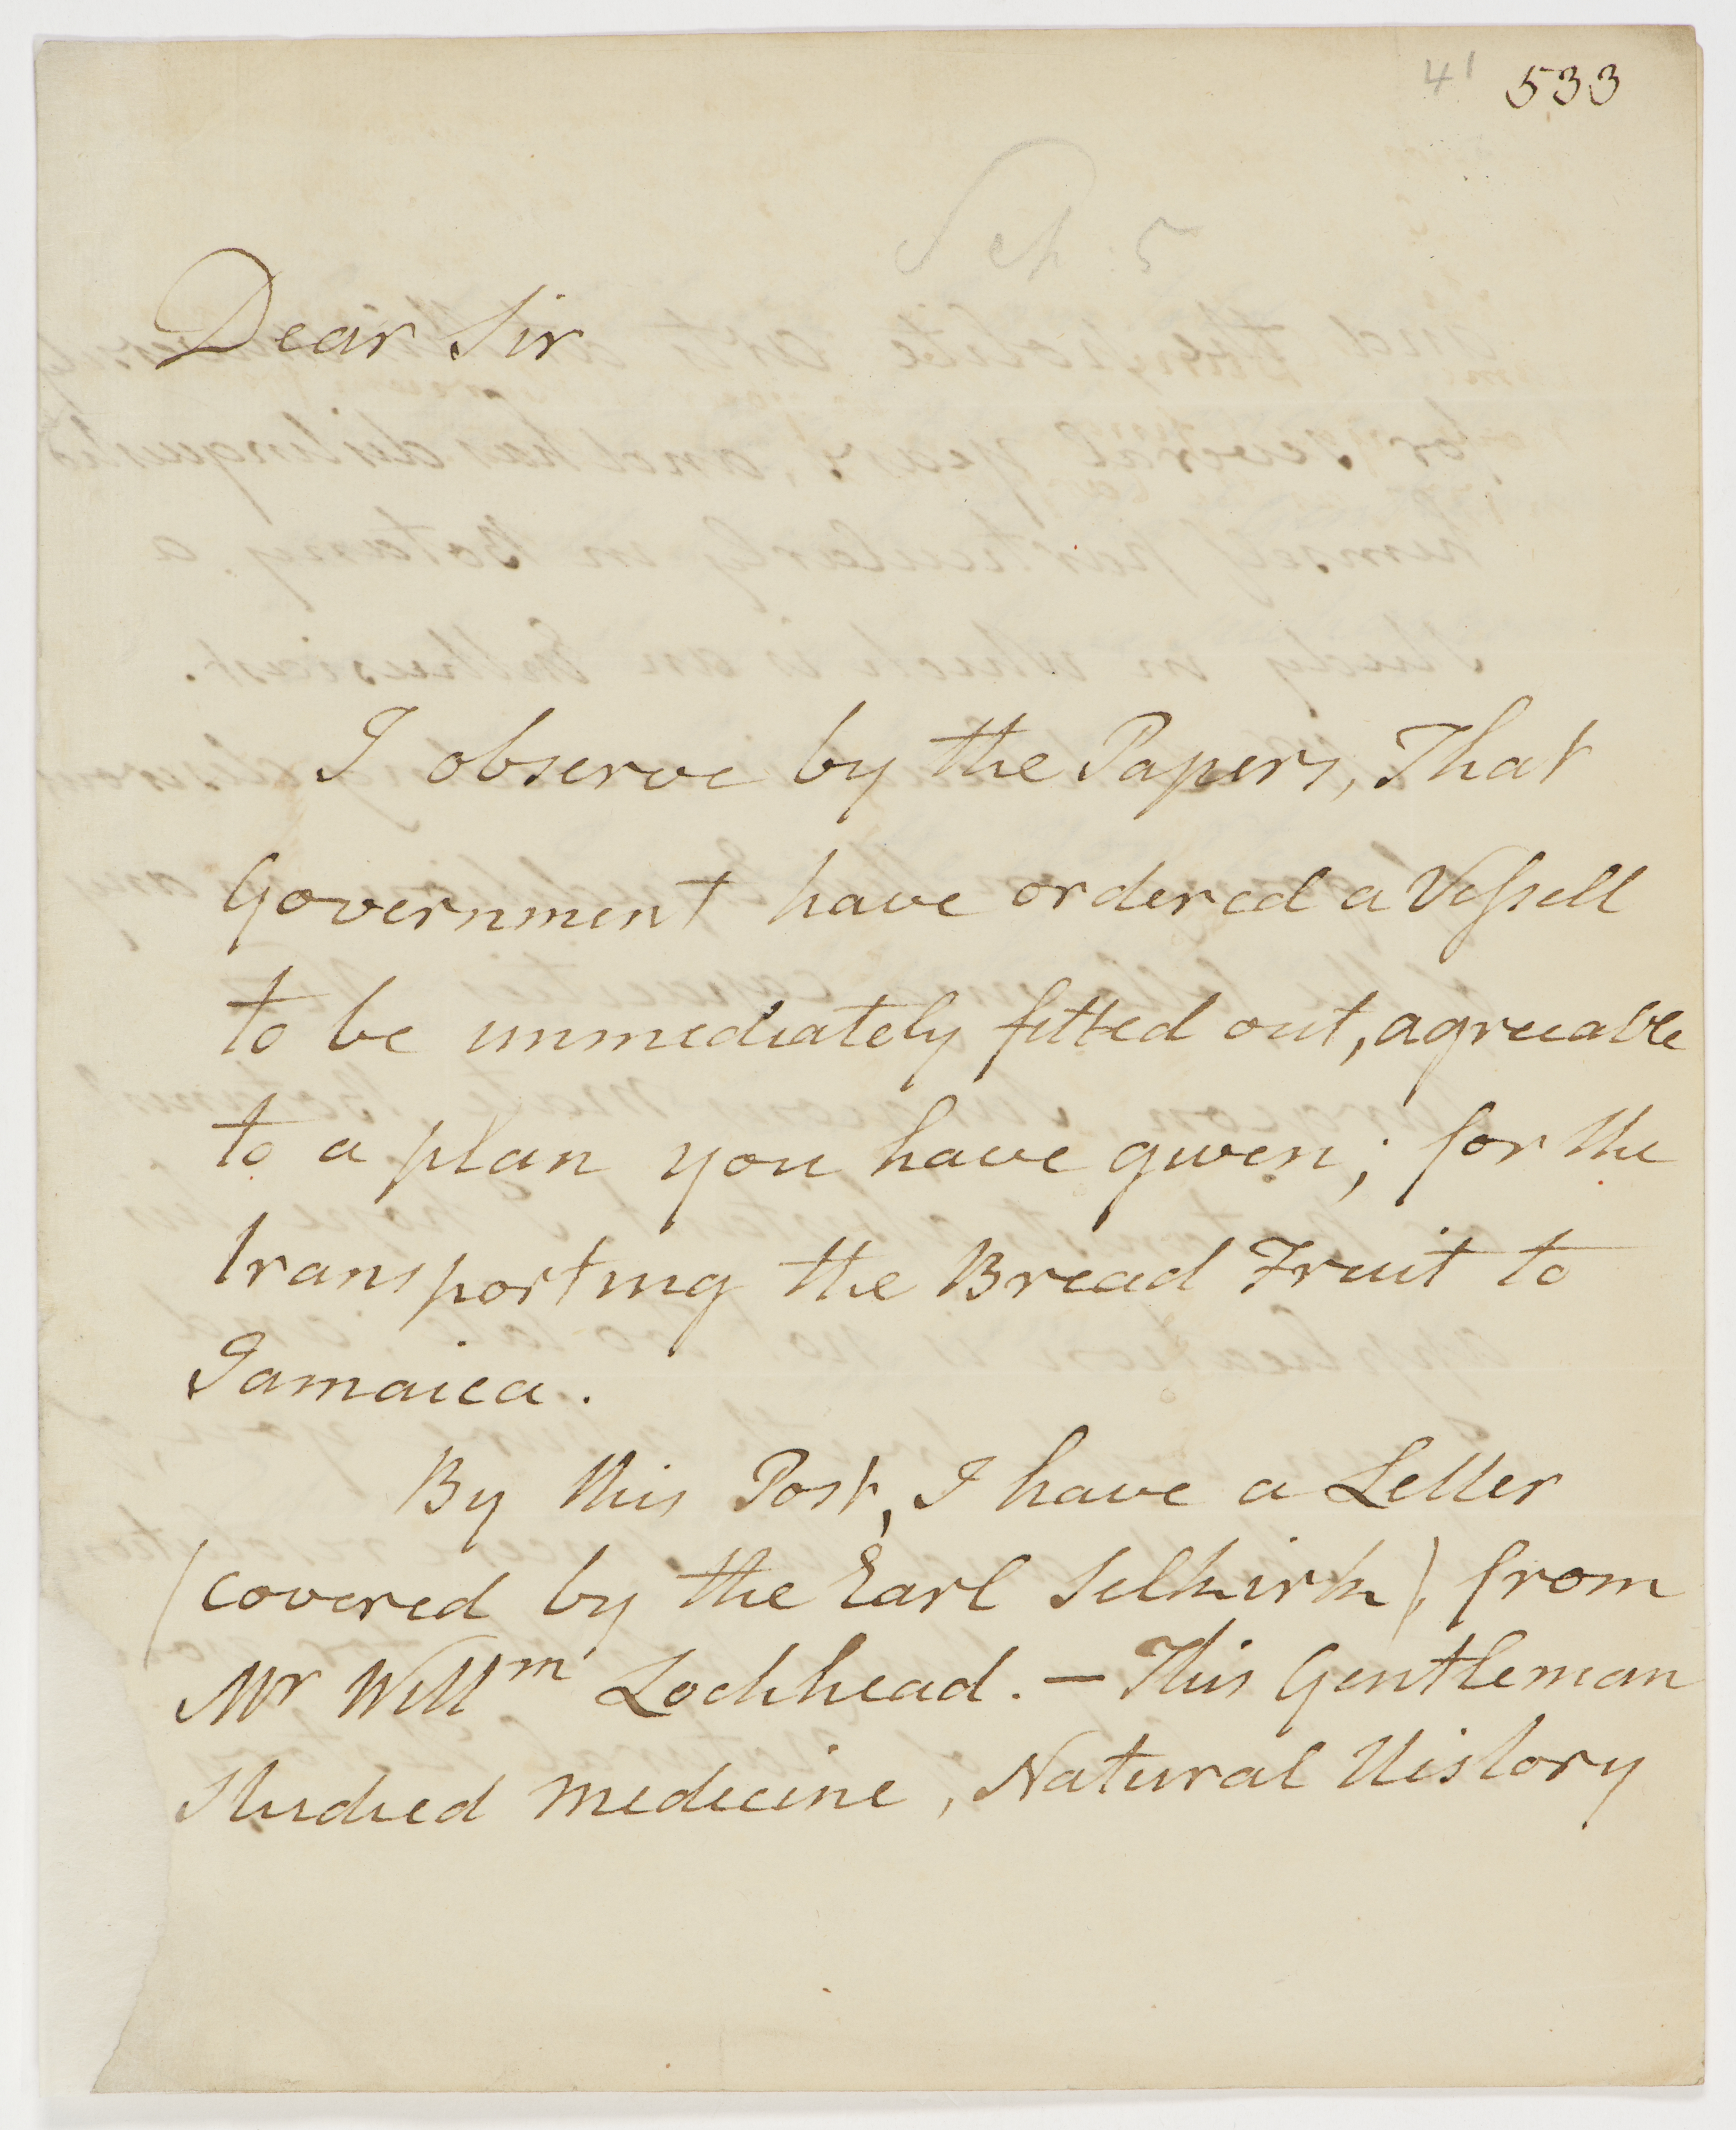 41 533
Sep. 5
Dear Sir
I observe by the Papers, That
Government have ordered a Vessell
to be immediately fitted out, agreeable
to a plan you have given; for the
transporting the Bread Fruit to
Jamaica.
By this Post, I have a Letter
(covered by the Earl Selkirk), from
Mr Willm Lochhead. — This Gentleman
Studied medicine, Natural History